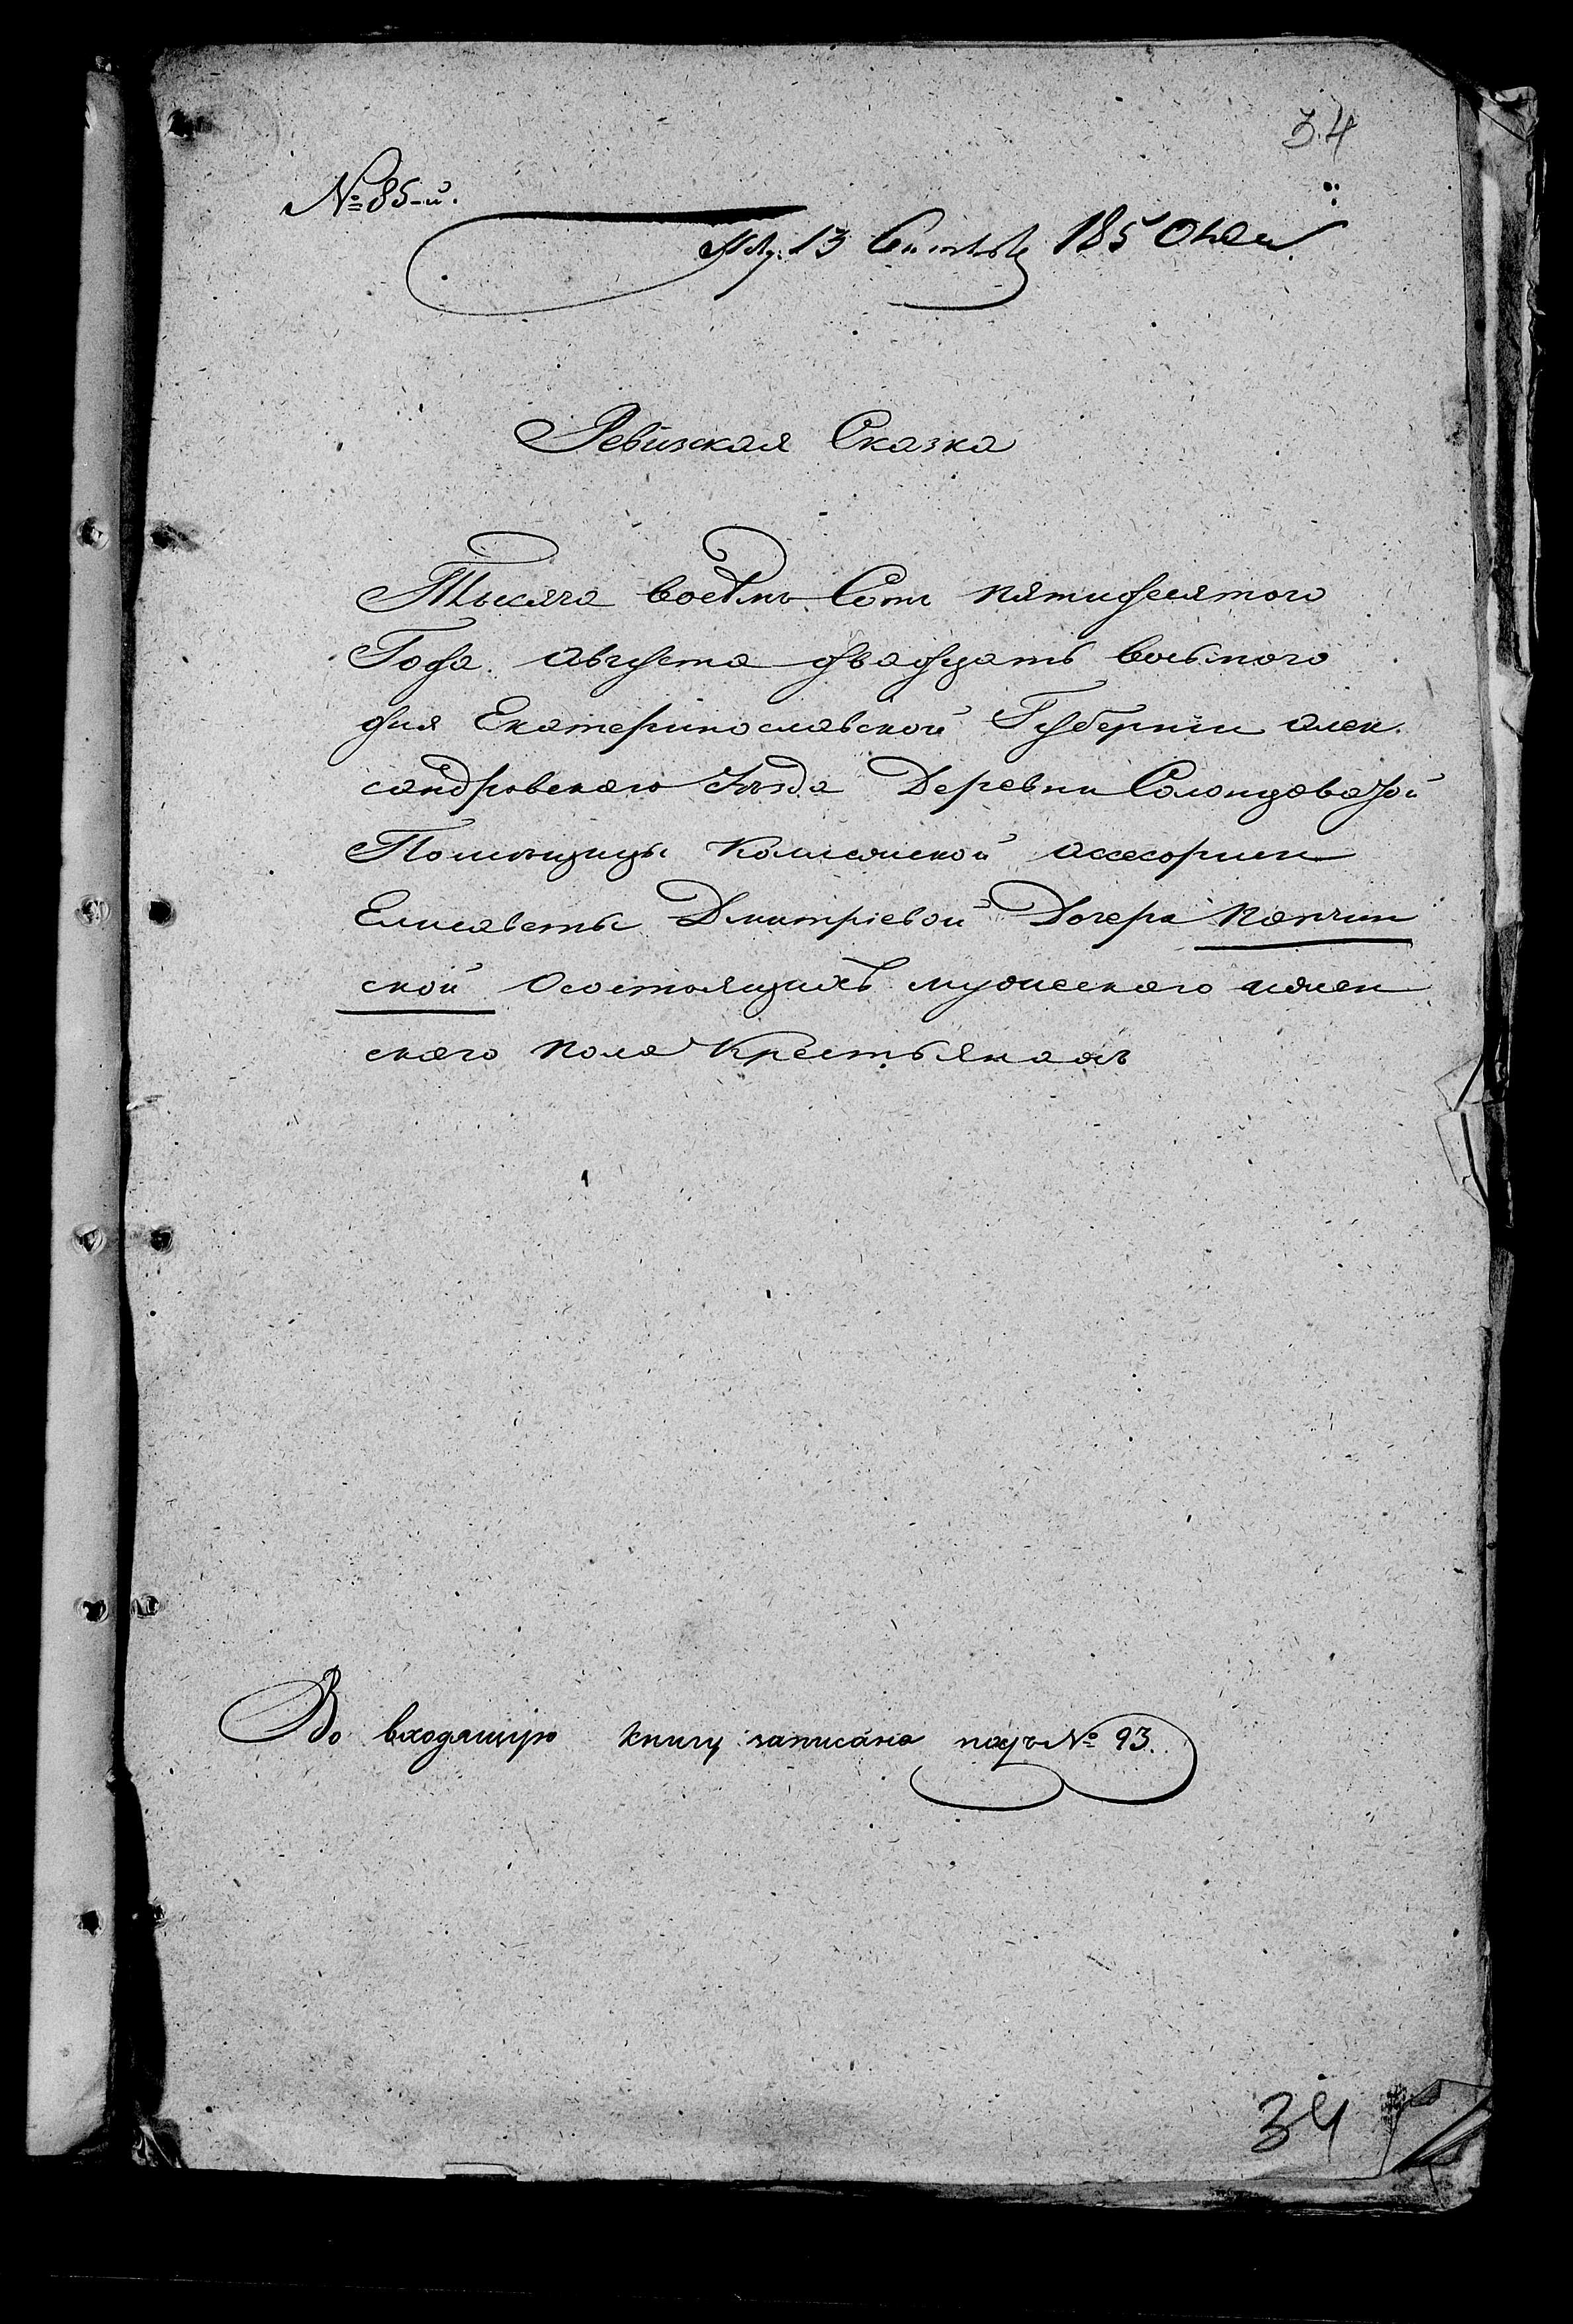 34
№ 85-й.
13 Сентяб 1850 года
Ревизская Сказка
Тысяча восемь Сотъ пятидесятого
Года августа двадцать восьмого
дня Екатеринославской Губерніи алек
сандровскаго уѣзда Деревни Солонцоватой
Помѣщицы Колежской ассесорши
Елисаветы Дмитріевой Дочери Папчин
ской Осостоящихъ мужескаго иженс
каго пола Крестьянахъ
Во входящую книгу записана подъ № 93.
34